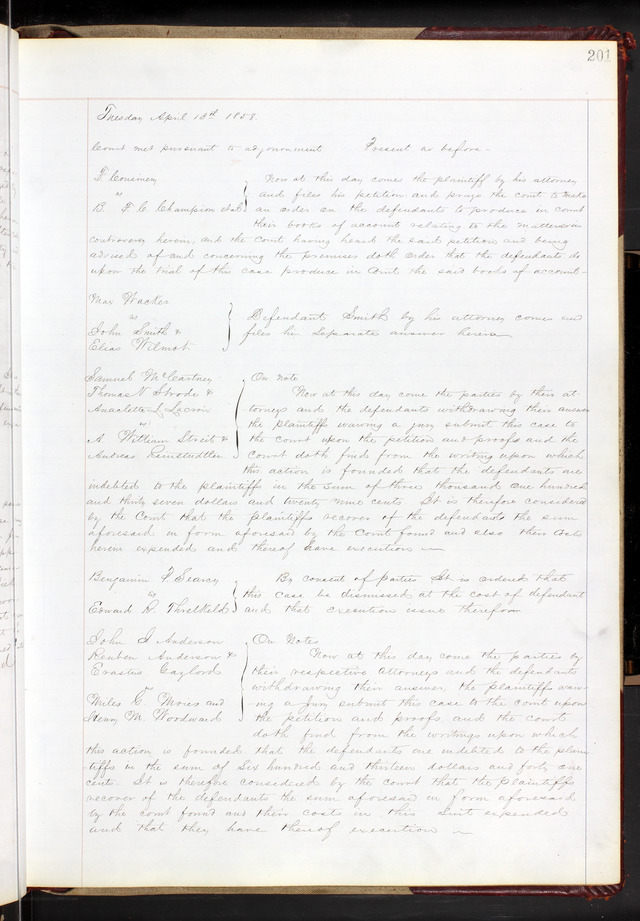 201
Tuesday April 13th 1858.
Court met pursuant to adjournment Present as before -
F. Consineny Now at this day comes the plaintiff by his attorney
vs and files his petition and prays the court to make
B. F. C. Champion et al an order on the defendants to produce in court
their books of account relating to the matters in
controversy herein, and the Court having heard the said petition and being
advised of and concerning the premises doth order that the defendants do
upon the trial of this case produce in Court the said books of account -
Max Wacker
vs Defendant Smith by his attorney comes and
John Smith & files his separate answer herein
Elias Wilmot
Samuel McCartney On Note
Thomas N Strode & Now at this day come the parties by their at-
Anaclette L Lacroix torneys and the defendants withdrawing their answer
vs the plaintiffs waving a jury submit this case to
A. William Streit & the Court upon the petition and proofs and the
Andreas Reinstadtler Court doth find from the writing upon which
this action is founded that the defendants are
indebted to the plaintiff in the sum of three thousand one hundred
and thirty seven dollars and twenty nine cents It is therefore considered
by the Court that the plaintiffs recover of the defendants the sum
aforesaid in form aforesaid by the Court found and also their costs
herein expended and thereof have execution -
Benjamin F Searcy By consent of parties It is ordered that
vs this case be dismissed at the cost of defendant
Edward R. Threlkeld and that execution issue therefor
John J Anderson On Notes
Reuben Anderson & Now at this day come the parties by
Erastus Gaylord their respective attorneys and the defendants
withdrawing their answer, the plaintiffs waiv-
Miles G. Moies and ing a jury submit this case to the court upon
Henry M. Woodward the petition and proofs and the court
doth find from the writings upon which
this action is founded that the defendants are indebted to the plain
tiffs in the sum of Six hundred and thirteen dollars and forty one
cents. It is therefore considered by the court that the plaintiffs
recover of the defendants the sum aforesaid in form aforesaid
by the court found and their costs in this suit expended
and that they have thereof execution -